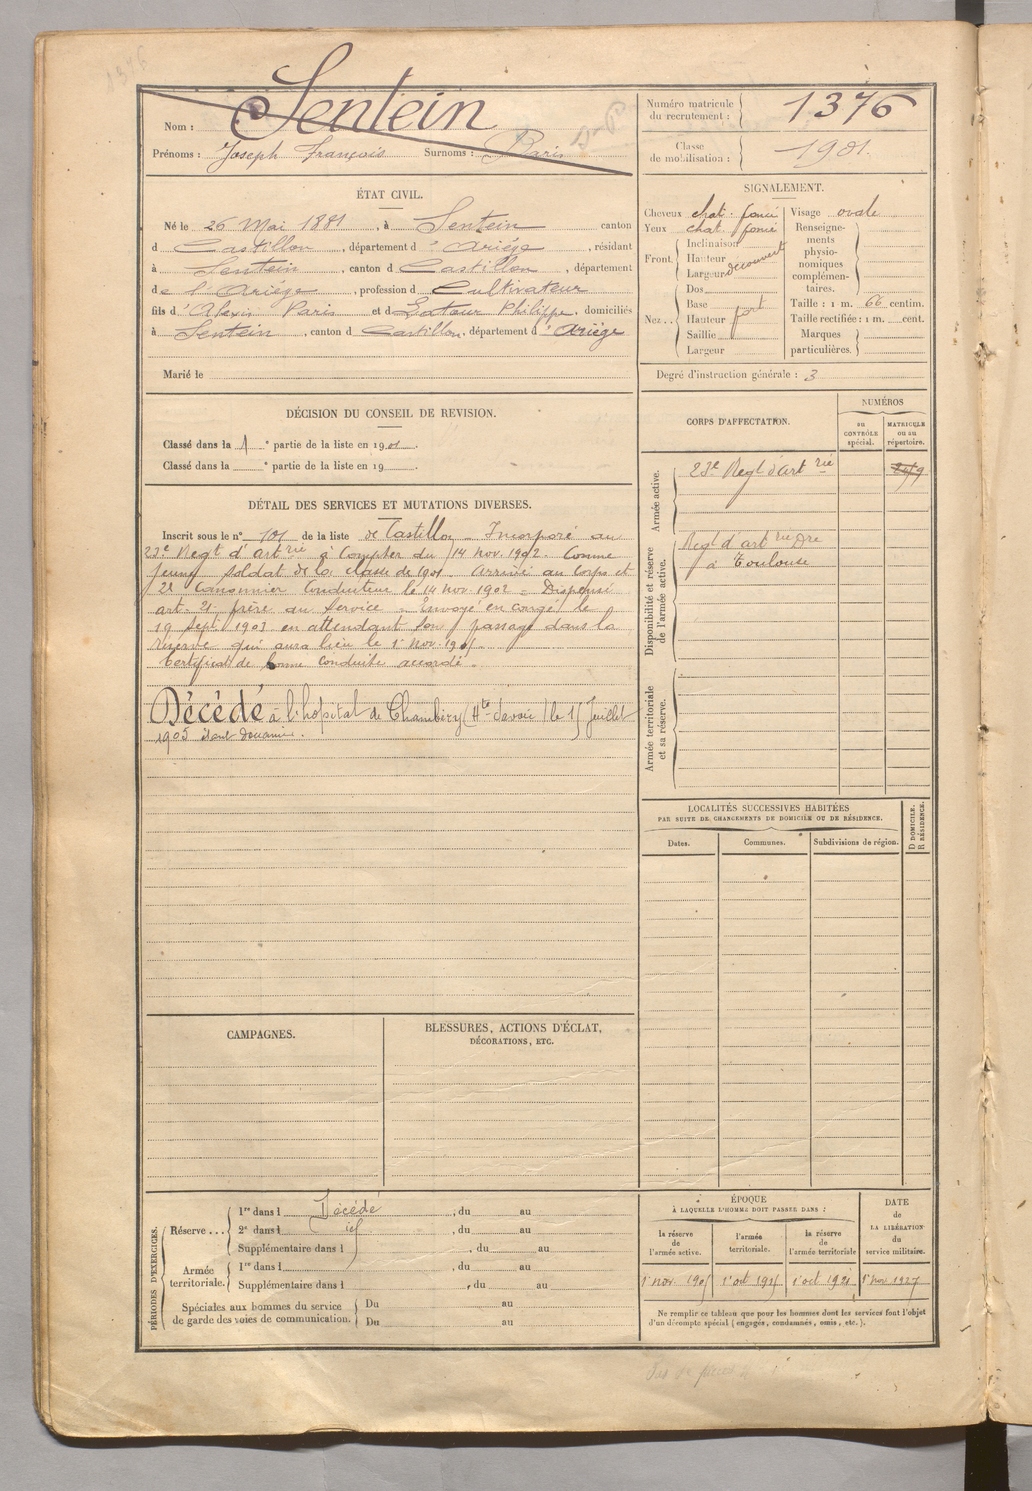 1376
Nom : Sentein
Prénoms : Joseph François Surnoms : Paris
Numéro matricule du recrutement : 1376
Classe de mobilisation : 1901.
ÉTAT CIVIL.
Né le 26 Mai 1881, à Sentein canton
d Castillon, département d 'Ariège, résidant
à Sentein, canton d Castillon, département
de l'Ariège, profession d Cultivateur
fils d'Alexis Paris et d Latour Philippe, domiciliés
à Sentein, canton d Castillon, département d 'Ariège
Marié le
SIGNALEMENT.
Cheveux chat. foncé
Yeux chat. foncé
Front. Inclinaison
Hauteur
Largeur découvert
Nez.. Dos
Base fort
Hauteur
Saillie
Largeur
Visage ovale
Renseignements physionomiques complémentaires.
Taille : 1 m. 66 centim.
Taille rectifiée : 1 m. cent.
Marques particulières.
Degré d'instruction générale : 3
DÉCISION DU CONSEIL DE REVISION.
Classé dans la 1e partie de la liste en 1901.
Classé dans la e partie de la liste en 19 .
CORPS D'AFFECTATION.
NUMÉROS
au CONTRÔLE spécial.
MATRICULE ou au répertoire.
Armée active.
23e Regt d'art rie
Disponibilité et réserve de l'armée active.
Regt d'art rie Dre
à Toulouse
Armée territoriale et sa réserve.
DÉTAIL DES SERVICES ET MUTATIONS DIVERSES.
Inscrit sous le n° 101 de la liste de Castillon - Incorporé au
23e Regt d'art rie à compter du 14 nov. 1902. Comme
jeune soldat de la classe de 1901. Arrivé au Corps et
2e Canonnier Conducteur le 14 nov. 1902 - Dispensé
art. 21 frère au Service - Envoyé en congé le
19 Sept. 1903 en attendant son passage dans la
réserve qui aura lieu le 1er Nov. 190
Certificat de bonne conduite accordé -
Décédé à l'hôpital de Chambéry (Hte Savoie) le 15 Juillet
1905 étant douanier.
LOCALITÉS SUCCESSIVES HABITÉES
PAR SUITE DE CHANGEMENTS DE DOMICILE OU DE RÉSIDENCE.
Dates.
Communes.
Subdivisions de région.
D DOMICILE.
R RÉSIDENCE.
CAMPAGNES.
BLESSURES, ACTIONS D'ÉCLAT,
DÉCORATIONS, ETC.
PÉRIODES D'EXERCICES.
Réserve... 1re dans l Décédé, du au
2e dans l, du au
Supplémentaire dans l, du au
Armée territoriale. 1re dans l, du au
Supplémentaire dans l, du au
Spéciales aux hommes du service
de garde des voies de communication.
Du au
Du au
ÉPOQUE
À LAQUELLE L'HOMME DOIT PASSER DANS :
la réserve de l'armée active.
l'armée territoriale.
la réserve de l'armée territoriale
DATE de LA LIBÉRATION du service militaire.
1er nov. 1905
1er oct 1915
1er oct 1921
1er nov. 1927
Ne remplir ce tableau que pour les hommes dont les services font l'objet
d'un décompte spécial (engagés, condamnés, omis, etc.).